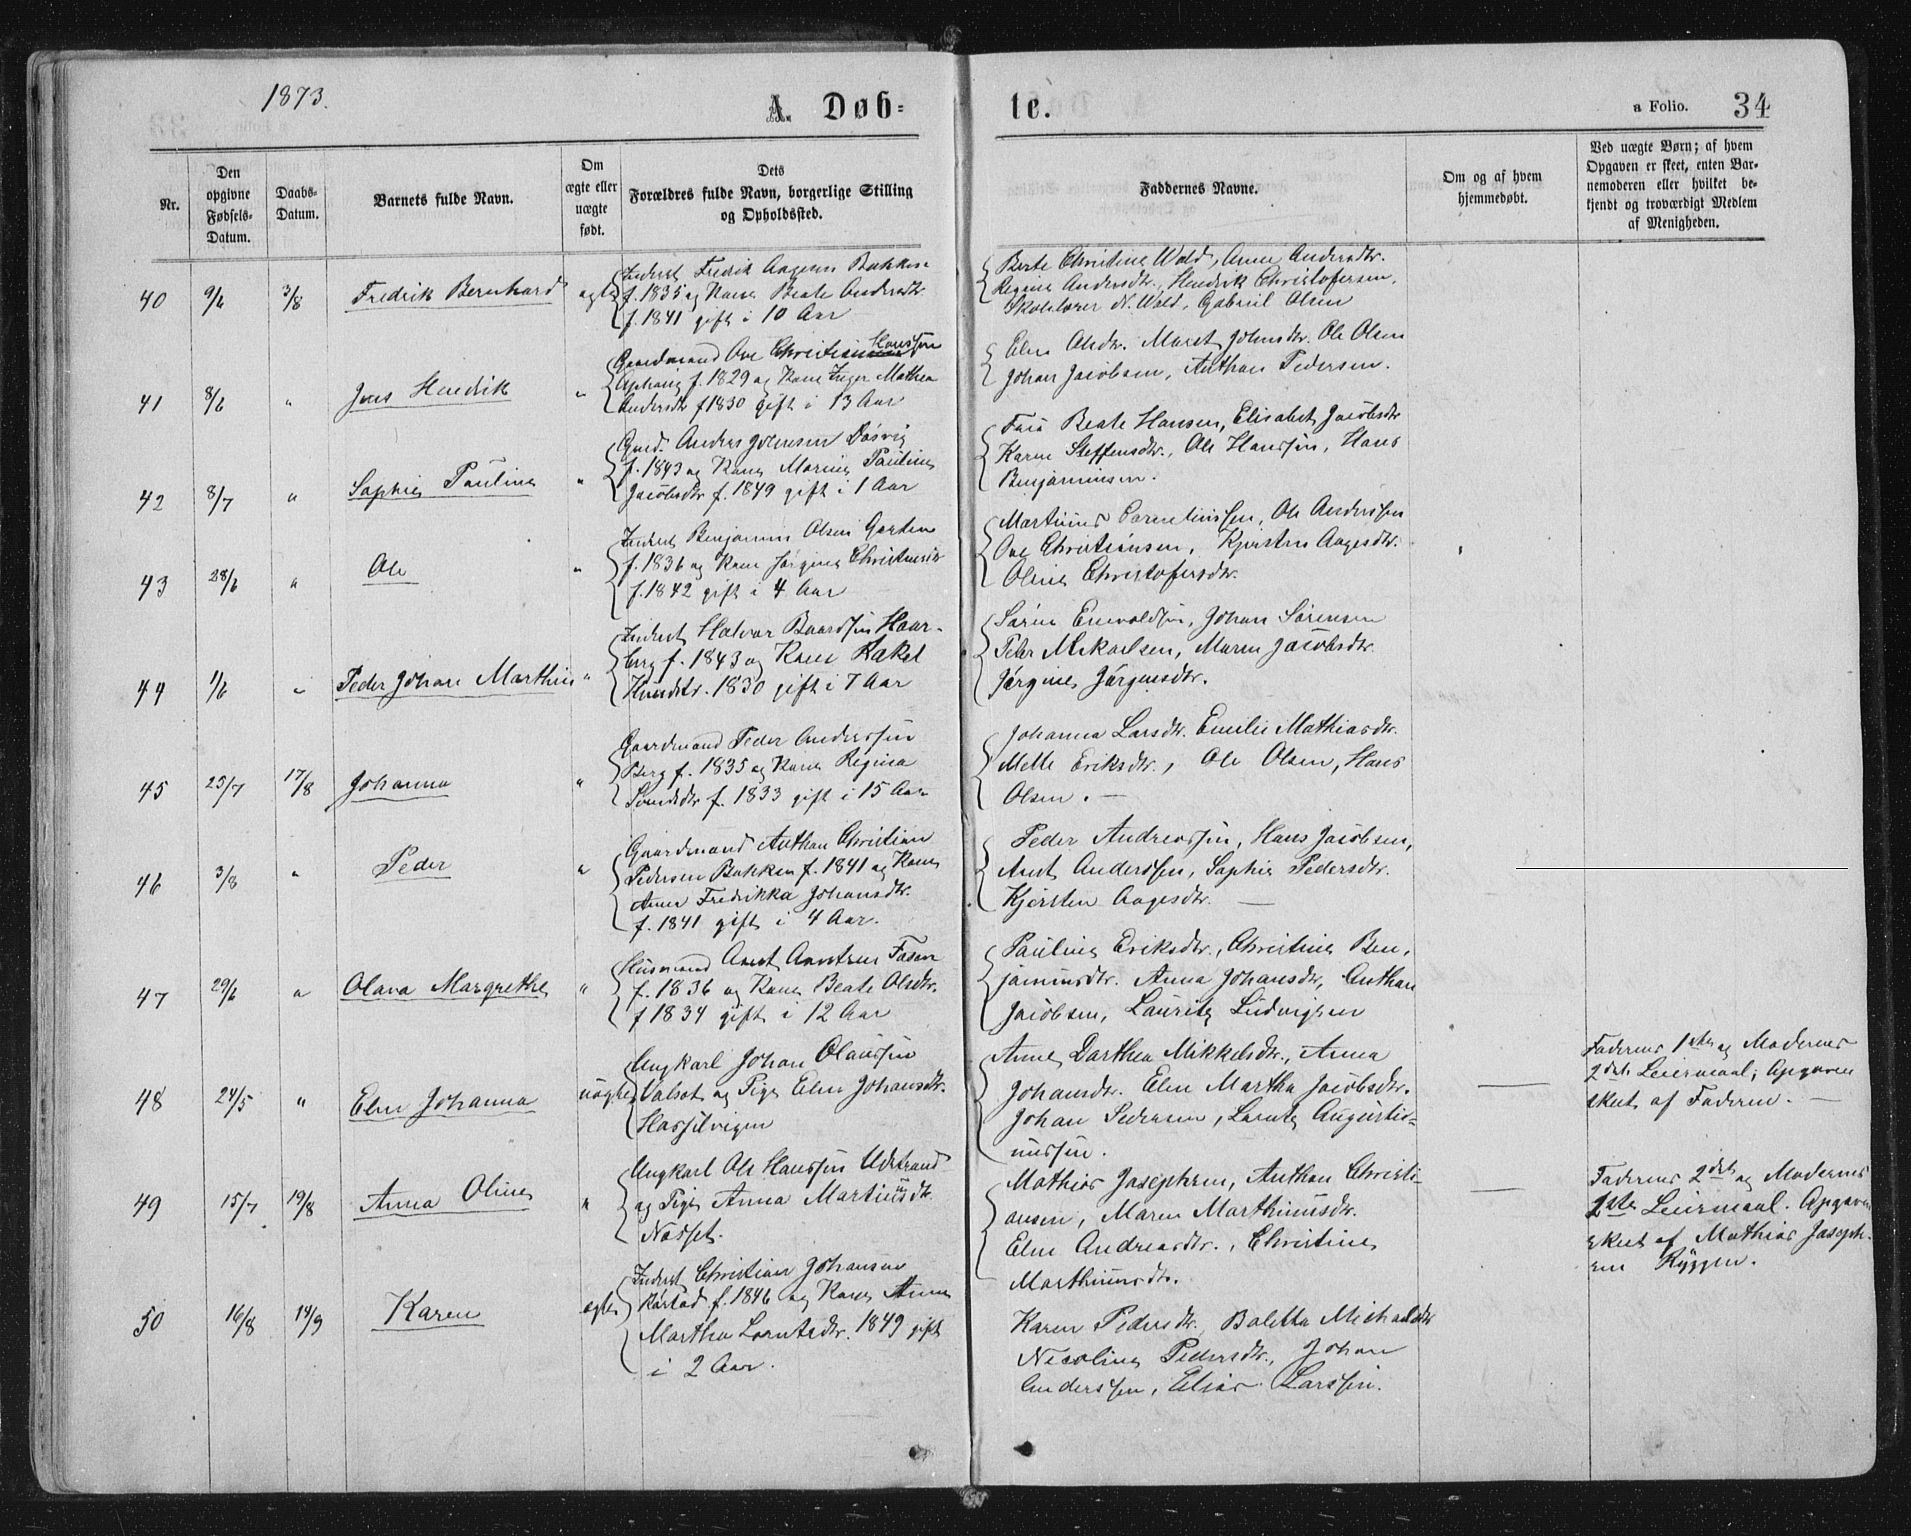 1873.
A. Døb-
te.
a Folio. 34
Nr.
Den opgivne Fødsels-Datum.
Daabs-Datum.
Barnets fulde Navn.
Om ægte eller uægte født.
Dets Forældres fulde Navn, borgerlige Stilling og Opholdssted.
Faddernes Navne.
Om og af hvem hjemmedøbt.
Ved uægte Børn; af hvem Opgaven er skeet, enten Barnemoderen eller hvilket bekjendt og troværdigt Medlem af Menigheden.
40 9/6 3/8 Fredrik Bernhard ægte
Inderst Fredrik Aagesen Bakken
f. 1835 og Kone Beate Andersdtr.
f. 1841 gift i 10 Aar
Berte Christine Wold, Anne Andersdtr.
Regine Andersdtr., Hendrik Christofersen,
Skolelærer N. Wold, Gabriel Olsen
41 8/6 " Jens Hendrik "
Gaardmand Ove Hanssen
f. 1829 og Kone Inger Mathea
Andersdtr f 1830 gift i 13 Aar
Elen Olsdtr. Maret Johnsdtr. Ole Olsen
Johan Jacobsen, Anthon Pedersen.
42 8/7 " Sophie Pauline "
Gmd. Anders Joensen Døsvig
f. 1843 og Kone Marine Pauline
Jacobsdtr f. 1849 gift i 1 Aar
Beate Hansen, Elisabet Jacobsdtr
Karen Steffensdtr., Ole Hanssen, Hans
Benjaminsen.
43 28/6 " Ole "
Inderst Benjamin Olsen Garten
f. 1836 og Kone Jørgine
f. 1842 gift i 4 Aar
Martinus Ole Anderssen
Ove Christiansen, Kjersten Aagesdtr.
Oline Christofersdtr.
44 1/6 " Peder Johan Marthin "
Inderst Halvor Baardsen Haar-
berg f. 1843 og Kone Rakel
1830 gift i 7 Aar
Søren Enevoldsen, Johan Sørensen
Peter Mikaelsen, Maren Jacobsdtr
Jørgine Jørgensdtr.
45 25/7 17/8 Johanna "
Gaardmand Peder Anderssen
Berg f. 1835 og Kone Regina
f. 1833 gift i 15 Aar
Johanna Larsdtr. Emelie Mathiasdtr.
Mette Eriksdtr., Ole Olsen, Hans
Olsen. —
46 3/8 " Peder "
Gaardmand Anthon Christian
Pedersen Bakken f. 1841 og Kone
Anna Fredrikka Johansdtr.
f. 1841 gift i 4 Aar.
Peder Andreassen, Hans Jacobsen,
Arnt Anderssen, Sophie Pedersdtr.
Kjersten Aagesdtr. —
47 29/6 " Olava Margrethe "
Husmand Arnt Arntsen Fasen
f. 1836 og Kone Beate Olsdtr.
f 1834 gift i 12 Aar
Pauline Eriksdtr., Christine Ben-
jaminsdtr. Anna Johansdtr, Anthon
Jacobsen, Lauritz Ludvigsen
48 24/5 " Elen Johanna uægte
Ungkarl Johan Olaussen
Valsøt og Pige Elen Johansdtr.
Hasselvigen
Anne Dorthea Mikkelsdtr., Anna
Johansdtr. Elen Martha Jacobsdtr.
Johan Pedersen, Lorntz Augusti-
nussen.
—
Faderens 1ste og Moderens
2det Leiermaal; Opgaven
skeet af Faderen. —
49 15/7 19/8 Anna Oline "
Ungkarl Ole Hanssen Udstrand
og Pige Anna Martinusdtr.
Nøsset.
Mathias Josephsen, Anthon Christi-
ansen, Maren Marthinusdtr.
Elen Andreasdtr., Christine
Marthinusdtr.
—
Faderens 2det og Moderens
1ste Leiermaal. Opgaven
skeet af Mathias Joseph-
sen Ryggen.
50 16/8 14/9 Karen ægte
Inderst Christian Johansen
f. 1846 og Kone Anne
Martha Lorntsdtr. 1849 gift
i 2 Aar.
Karen Pedersdtr, Boletta Michaelsdtr
Nicoline Pedersdtr., Johan
Anderssen, Elias Larssen.